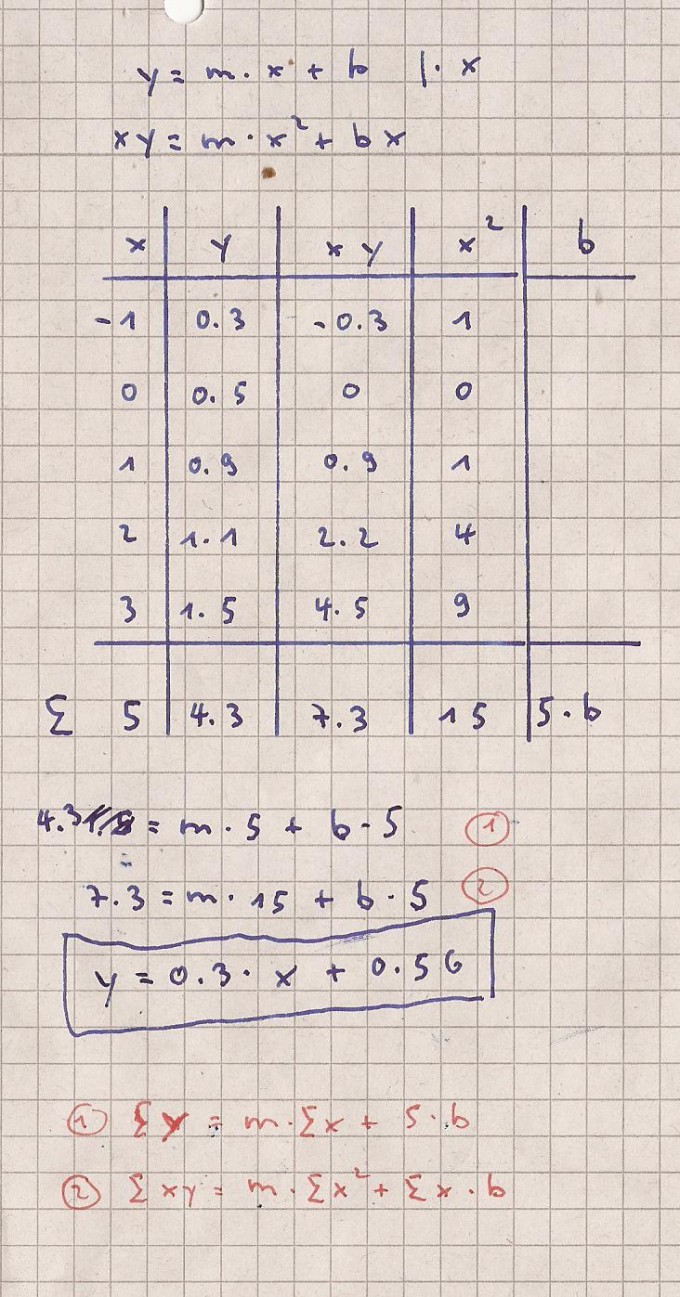 y = m · x + b | · x
xy = m · x² + bx
x y xy x² b
-1 0.3 -0.3 1
0 0.5 0 0
1 0.9 0.9 1
2 1.1 2.2 4
3 1.5 4.5 9
Σ 5 4.3 7.3 15 5 · b
4.3 = m · 5 + b · 5 ①
7.3 = m · 15 + b · 5 ②
y = 0.3 · x + 0.56
① Σy = m · Σx + 5 · b
② Σxy = m · Σx² + Σx · b